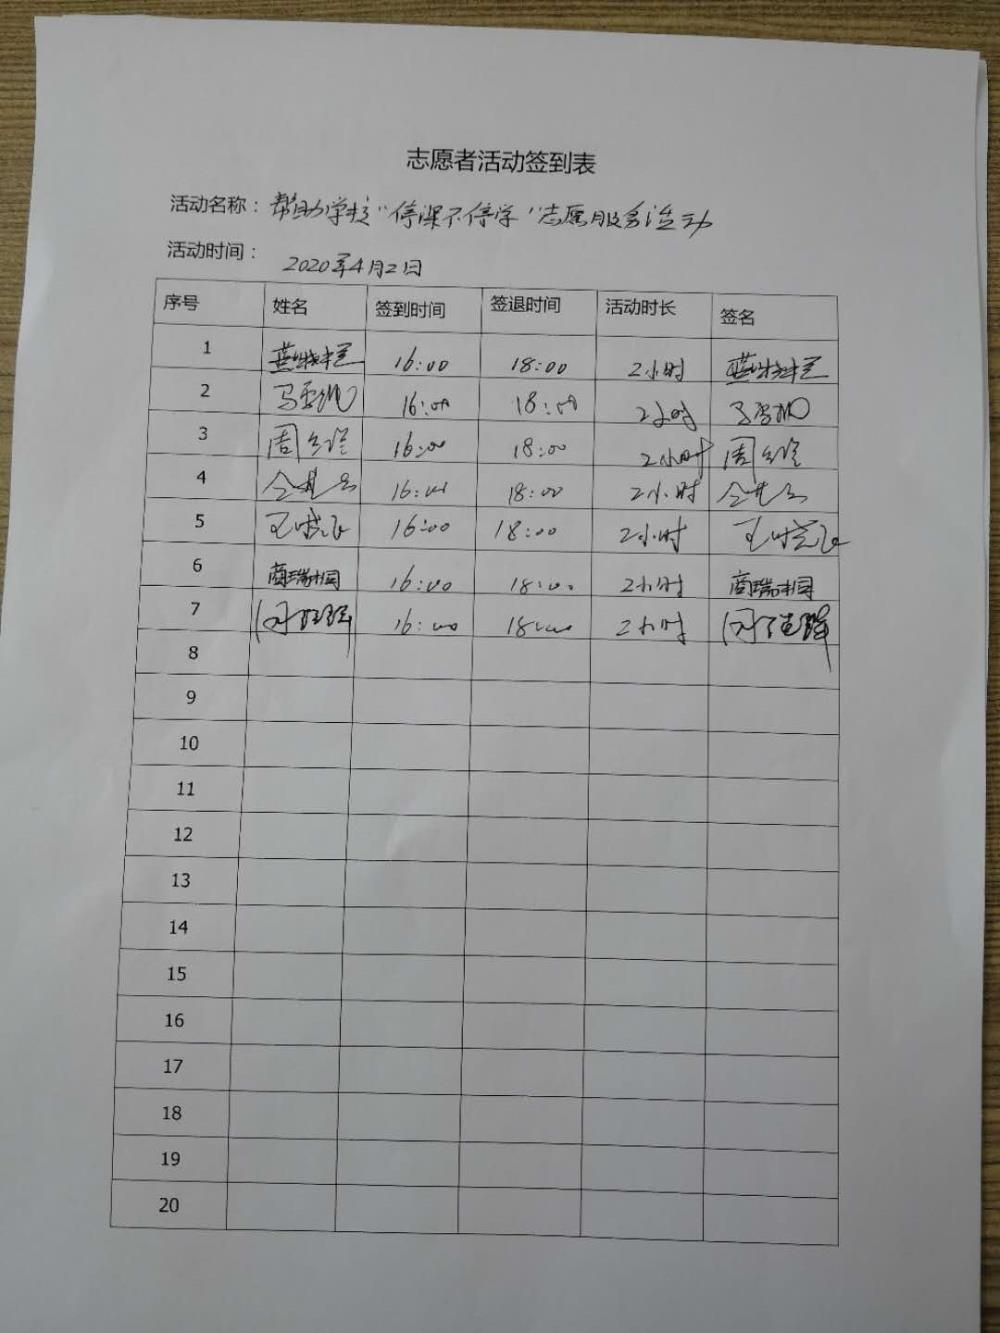 志愿者活动签到表
活动名称：帮助学校“停课不停学”志愿服务活动
活动时间：2020年4月2日
序号 姓名 签到时间 签退时间 活动时长 签名
1 16:00 18:00 2小时
2 16:00 18:00 2小时
3 周 16:00 18:00 2小时 周
4 16:00 18:00 2小时
5 王晓飞 16:00 18:00 2小时 王晓飞
6 商瑞 16:00 18:00 2小时 商瑞
7 16:00 18:00 2小时
8
9
10
11
12
13
14
15
16
17
18
19
20